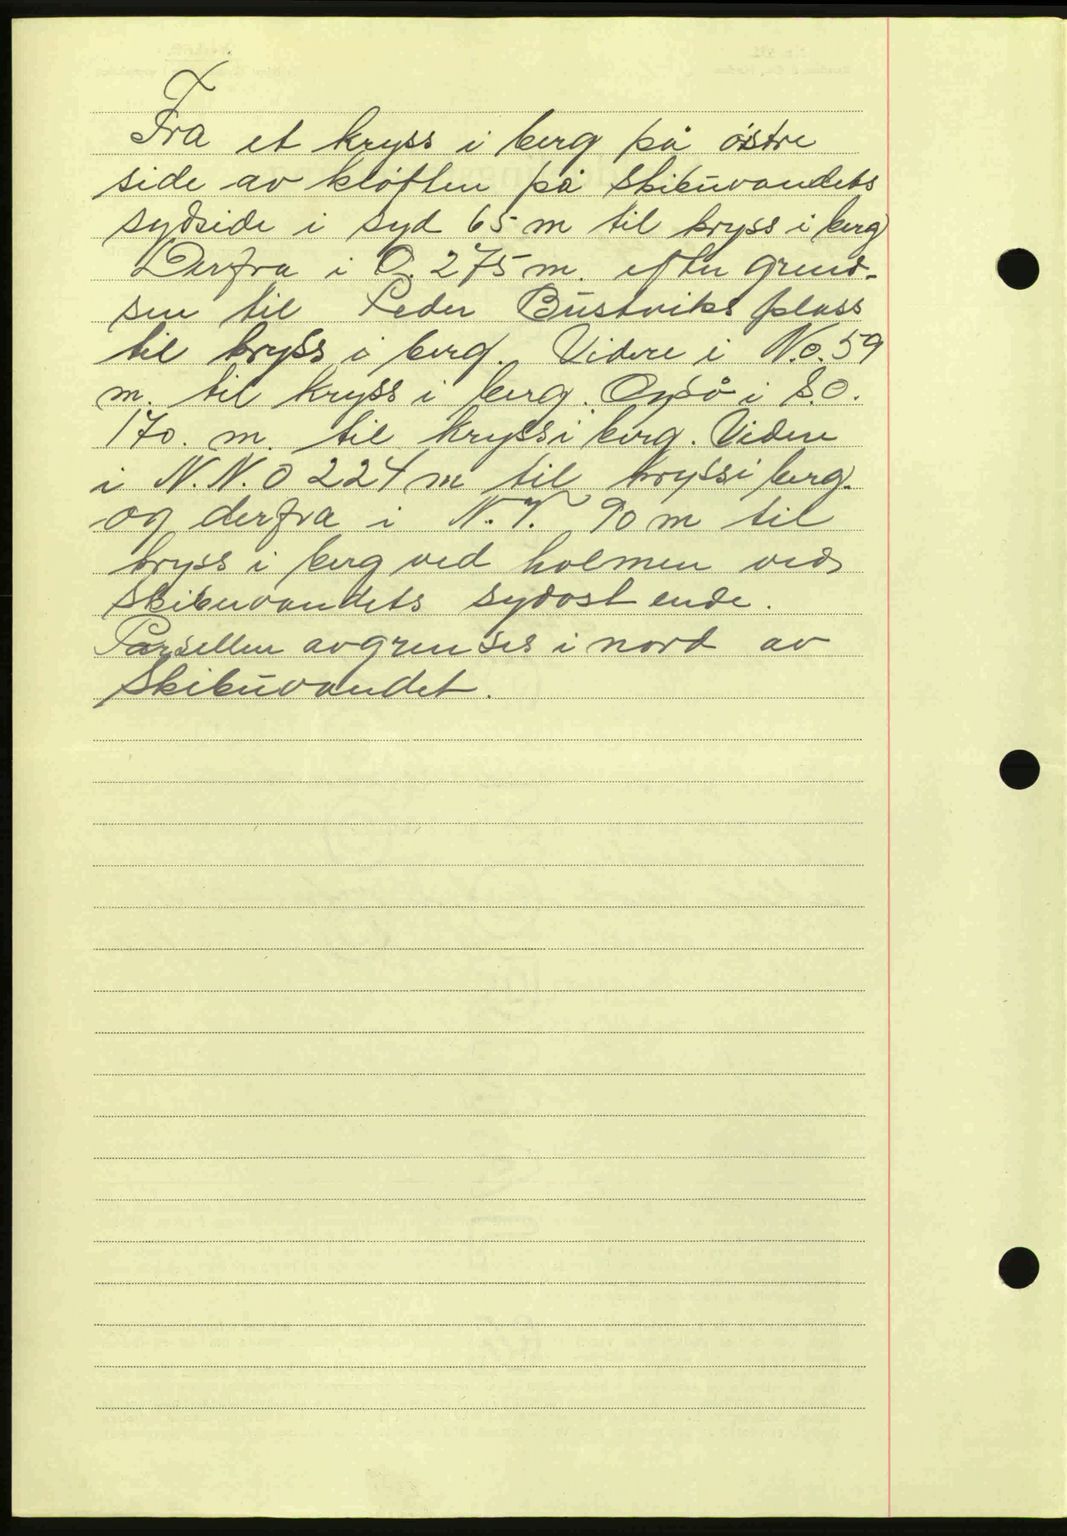 Fra et kryss i berg på østre
side av kløften på Skibuvandets
sydside i syd 65 m til kryss i berg
Derfra i O. 275 m. efter grend-
sen til Peder Bustviks plass
til kryss i berg. Videre i N.O. 59
m. til kryss i berg. Også i S.O.
170. m. til kryss i berg. Videre
i N.N.O 224 m til kryss i berg.
og derfra i N.V. 90 m til
kryss i berg ved holmen ved
Skibuvandets sydost ende.
Parsellen avgrenses i nord av
Skibuvandet.